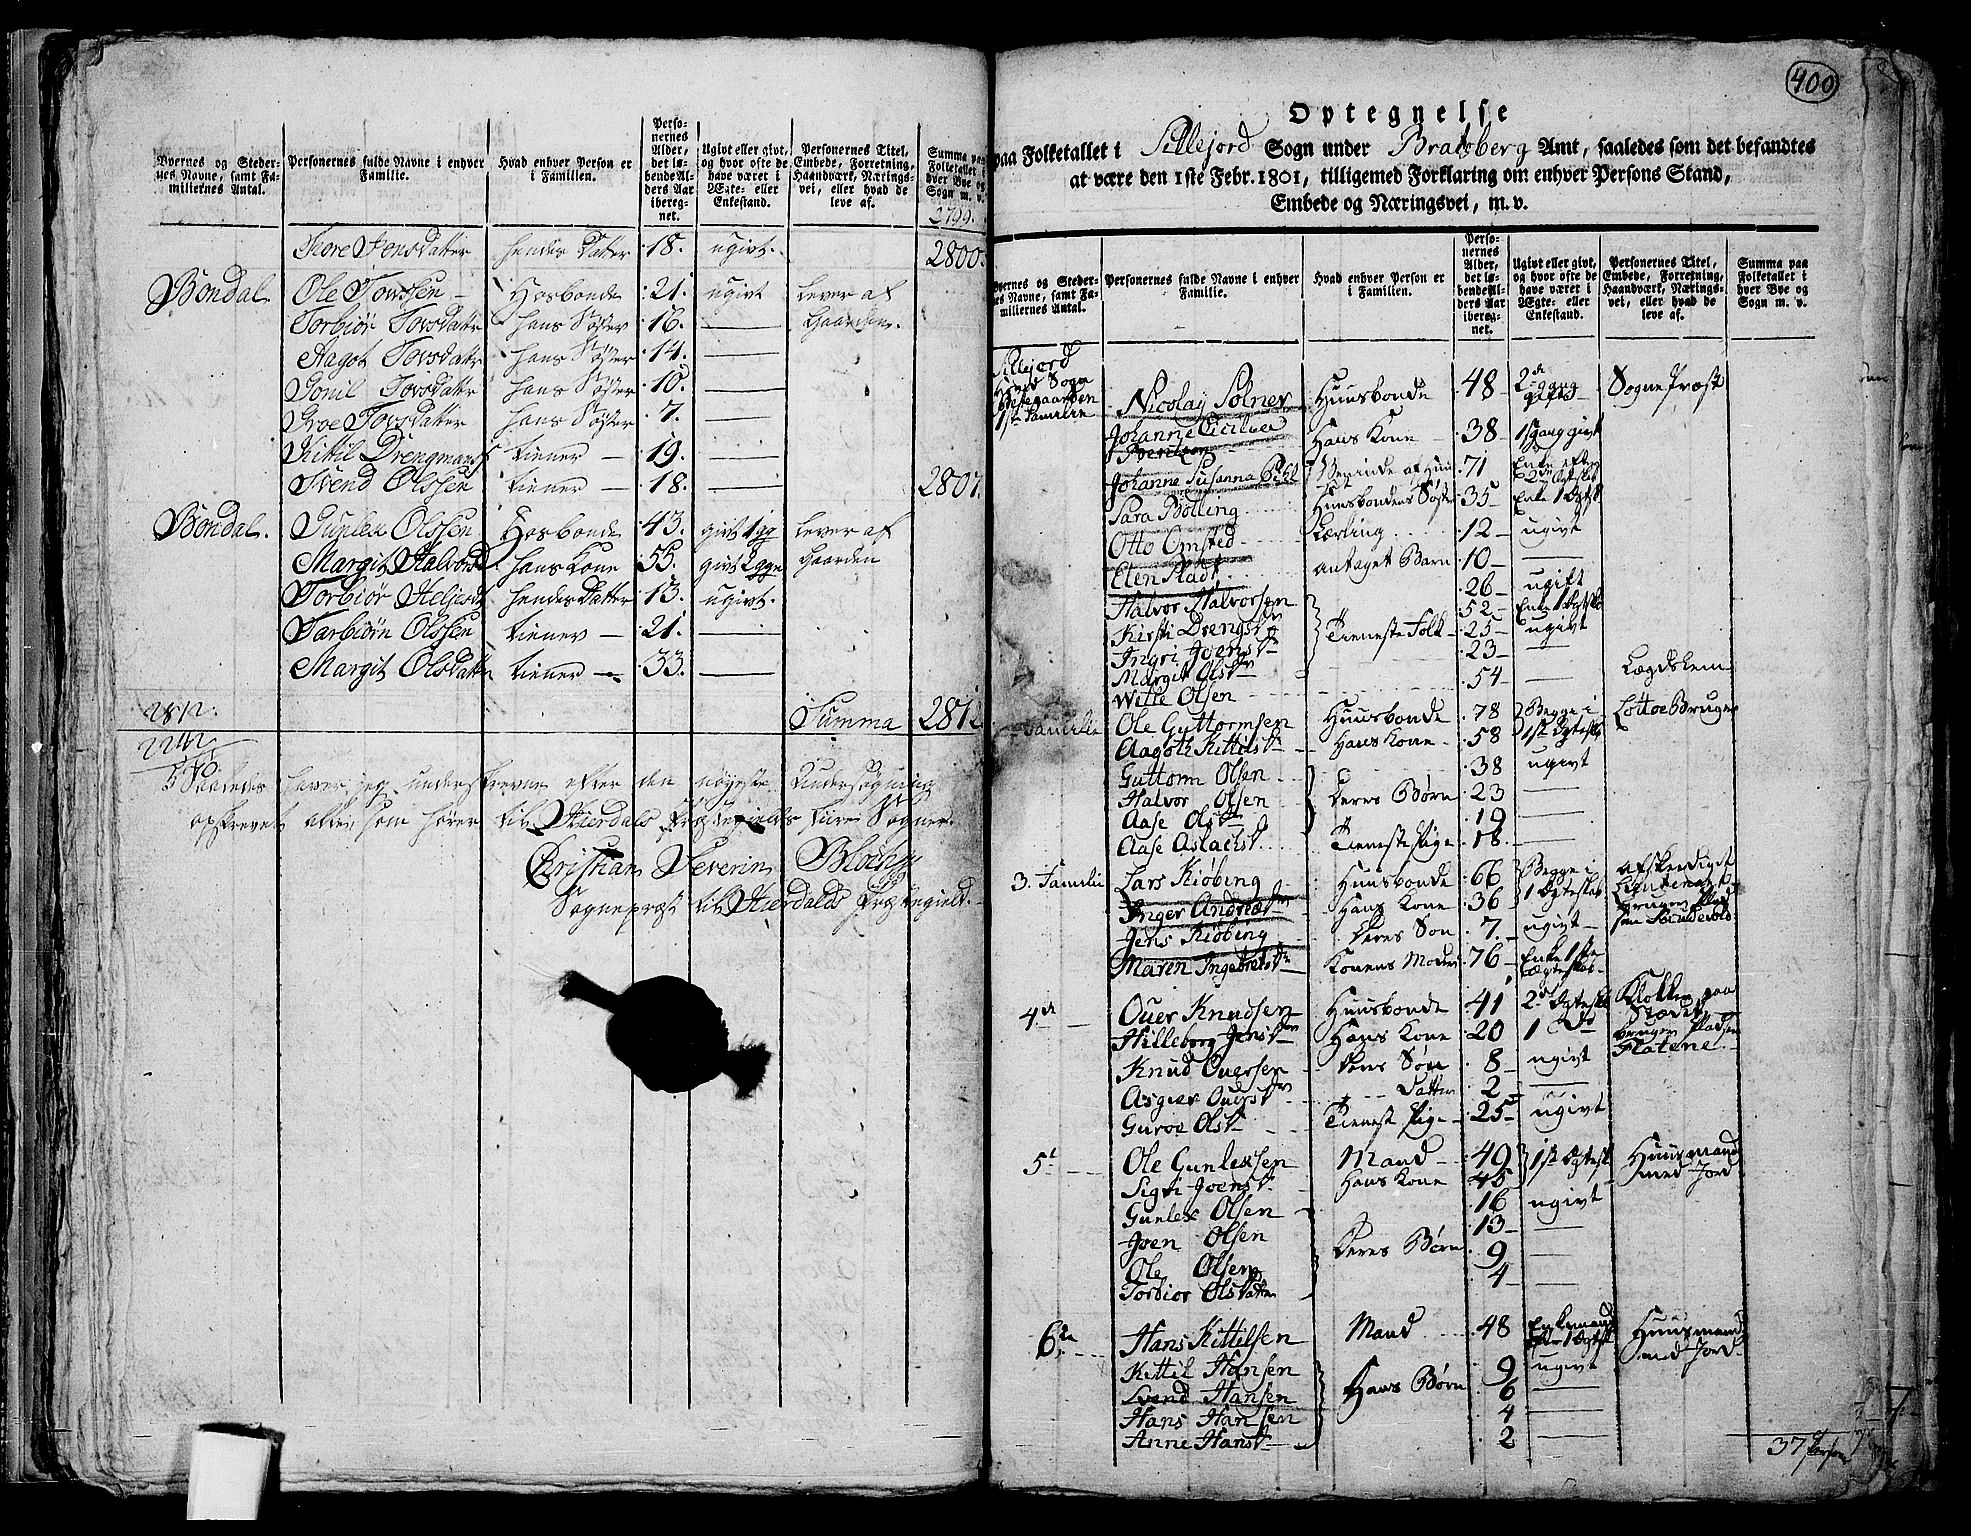 Byernes og Steder-
nes Navne, samt Fa-
miliernes Antal.
Personernes fulde Navne i enhver
Familie.
Hvad enhver Person er
i Familien.
Perso-
nernes
Alder,
det lø-
bende Al-
ders Aar
iberegnet.
Ugivt eller givt,
og hvor ofte de
have været i
Ægte- eller
Enkestand.
Personernes Titel,
Embede, Forretning,
Haandværk, Nærings-
vei, eller hvad de
leve af.
Summa paa
Folketallet i
hver Bye og
Sogn m. v.
2799.
Tore Jonsdatter hendes Datter 18. ugivt. 2800.
Bondal Ole Tovssen Hosbonde 21. ugivt lever af
Torbiør Tovsdattr hans Søster 16. — Gaarden.
Aagot Tovsdattr hans Søster 14. —
Gonil Tovsdattr hans Søster 10. —
Groe Tovsdatter hans Søster 7. —
Kittil Drengmans tiener — 19. —
Svend Olssen tiener — 18. — 2807.
Bondal. Gunlex Olssen Hosbonde 43. givt 1 gg lever af
Margit Halvorsd hans Kone 55. givt 2 ggr Gaarden
Torbiør Heljesdt hendes Datter 13. ugivt.
Tarbiørn Olssen tiener — 21. —
Margit Olsdatter tiener — 33. —
2812. Summa 2812
2242
570
Saaledes haver jeg underskrevne efter den nøyeste Undersøgning
opskrevet alle, som hører til Hierdals Præstegields fiire Sogner.
Christian Severin Bloch
Sognepræst til Hierdals Præstegield.
400
Optegnelse
paa Folketallet i Sillejord Sogn under Bratsberg Amt, saaledes som det befandtes
at være den 1ste Febr. 1801, tilligemed Forklaring om enhver Persons Stand,
Embede og Næringsvei, m. v.
Byernes og Steder-
nes Navne, samt Fa-
miliernes Antal.
Personernes fulde Navne i enhver
Familie.
Hvad enhver Person er
i Familien.
Perso-
nernes
Alder,
det lø-
bende Al-
ders Aar
ibereg-
net.
Ugivt eller givt,
og hvor ofte de
have været i
Ægte- eller
Enkestand.
Personernes Titel,
Embede, Forretning,
Haandværk, Nærings-
vei, eller hvad de
leve af.
Summa paa
Folketallet i
hver Bye og
Sogn m. v.
Sillejord
Hoved Sogn
1ste Familie
Nicolay Solner Huusbonde 48 2de gang gift Sogne Præst
Johanne Cicilia Hans Kone 38 1 gang givt
Johanne Susanna 71 Enke efter
Sara Bolling Huusbondens Søster 35 Enke 1
Otto Omsted Lærling 12 ugivt
Elen Stadt antaget Barn 10 —
Halvor Halvorsen 26 ugift
Kirsti Drengsdr 52 Enke
Ingri Joensdr Tieneste Folk 25 ugivt
Margit Olsdr 23 —
Wetle Olsen 54 — Lægdslem
Familie Ole Guttormsen Huusbonde 78 Begge i
Aagoth Kittilsdr Hans Kone 58 1ste
Guttorm Olsen 38 ugivt
Halvor Olsen Deres Børn 23 —
Aase Olsdr 19 —
Aase Aslachsdr. Tieneste Pige 18. —
3. Familie Lars Kiøbing Huusbonde 66 Begge i afskediget
Inger Andreæ Hans Kone 36 1 Ægteskab
Jens Kiøbing Deres Søn 7. ugivt
Maren Ingebretsdr Konens Moder 76 Enke 1ste
4de Ouer Knudsen Huusbonde 41 2d Klokker paa
Hilleborg Jensdr Hans Kone 20 1 Do bruger Pladsen
Knud Ouersen Deres Søn 8 ugivt Flatene
Asgier Ouersdr Datter 2 —
Guroe Olsdr Tieneste Pige 25 ugivt
5t Ole Gunlexsen Mand 49 1ste Huusmand
Sigri Joensdr. Hans Kone 45 med Jord
Gunlex Olsen 16 ugivt
Joen Olsen Deres Børn 13 —
Ole Olsen 9 —
Torbior Olsdatter 4 —
6te Hans Kittilsen Mand 48 Enkemand Huusmand
med Jord
Kittil Hansen 9 ugivt
Svend Hansen Hans Børn 6 —
Hans Hansen 4 —
Anne Hansdr 2 —
37